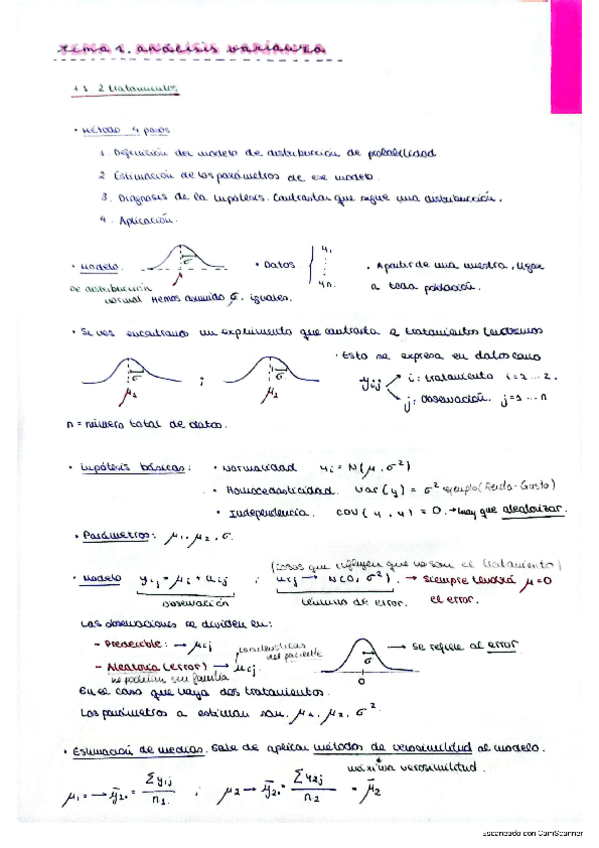 tema 1. análisis varianza
1.1 2 tratamientos
• Método 4 pasos
1. Definición del modelo de distribución de probabilidad
2 Estimación de los parámetros de ese modelo.
3. Diagnosis de la hipótesis. Contrastar que sigue una distribución.
4. Aplicación.
• Modelo. σ • Datos y1 ⋮ yn. • A partir de una muestra, llegar
De distribución normal Hemos asumido σ. iguales. a toda población.
• Si nos encontramos un experimento que contrasta 2 tratamientos tendremos
σ μ1 ; σ μ2 • Esto se expresa en datos como
yij i: tratamiento i=1 ... 2.
j: observación. j=1 ... n
n = número total de datos.
• Hipótesis básicas: • Normalidad yi = N(μ, σ²)
• Homocedasticidad. var(y) = σ² ejemplo (Renta-Gasto)
• Independencia. cov(y, y) = 0. → hay que aleatorizar.
• Parámetros: μ1, μ2, σ.
(cosas que influyen que no son el tratamiento)
• Modelo yij = μi + uij ; uij → N(0, σ²). → siempre tendrá μ=0
observación término de error. el error.
Las observaciones se dividen en:
- Predecible: → μij características del paciente
- Aleatoria (error) → uij. σ 0 → se refiere al error
no podrían ser familia
En el caso que haya dos tratamientos.
Los parámetros a estimar son, μ1, μ2, σ².
• Estimación de medias. Sale de aplicar métodos de verosimilitud al modelo.
máxima verosimilitud.
μ1 = → ȳ1. = Σ y1j / n1. ; μ2 → ȳ2. = Σ y2j / n2 = μ̄2
Escaneado con CamScanner